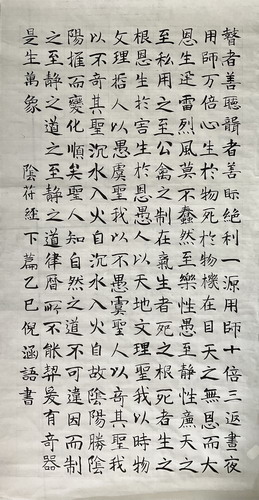 瞽者善聽聾者善眎絕利一源用師十倍三返晝夜
用師万倍心生於物死於物機在目天之無恩而大
恩生迅雷烈風莫不蠢然至樂性愚至静性廉天之
至私用之至公禽之制在氣生者死之根死者生之
根恩生於害生於恩愚人以天地文理聖我以時物
文理哲人以愚虞聖我以不愚虞聖人以奇其聖我
以不奇其聖沉水入火自沉水入火自故陰陽勝陰
陽推而變化順矣聖人知自然之道不可違因而制
之至静之道之至静之道律曆所不能契爰有奇器
是生萬象 陰符經下篇乙巳倪涵語書